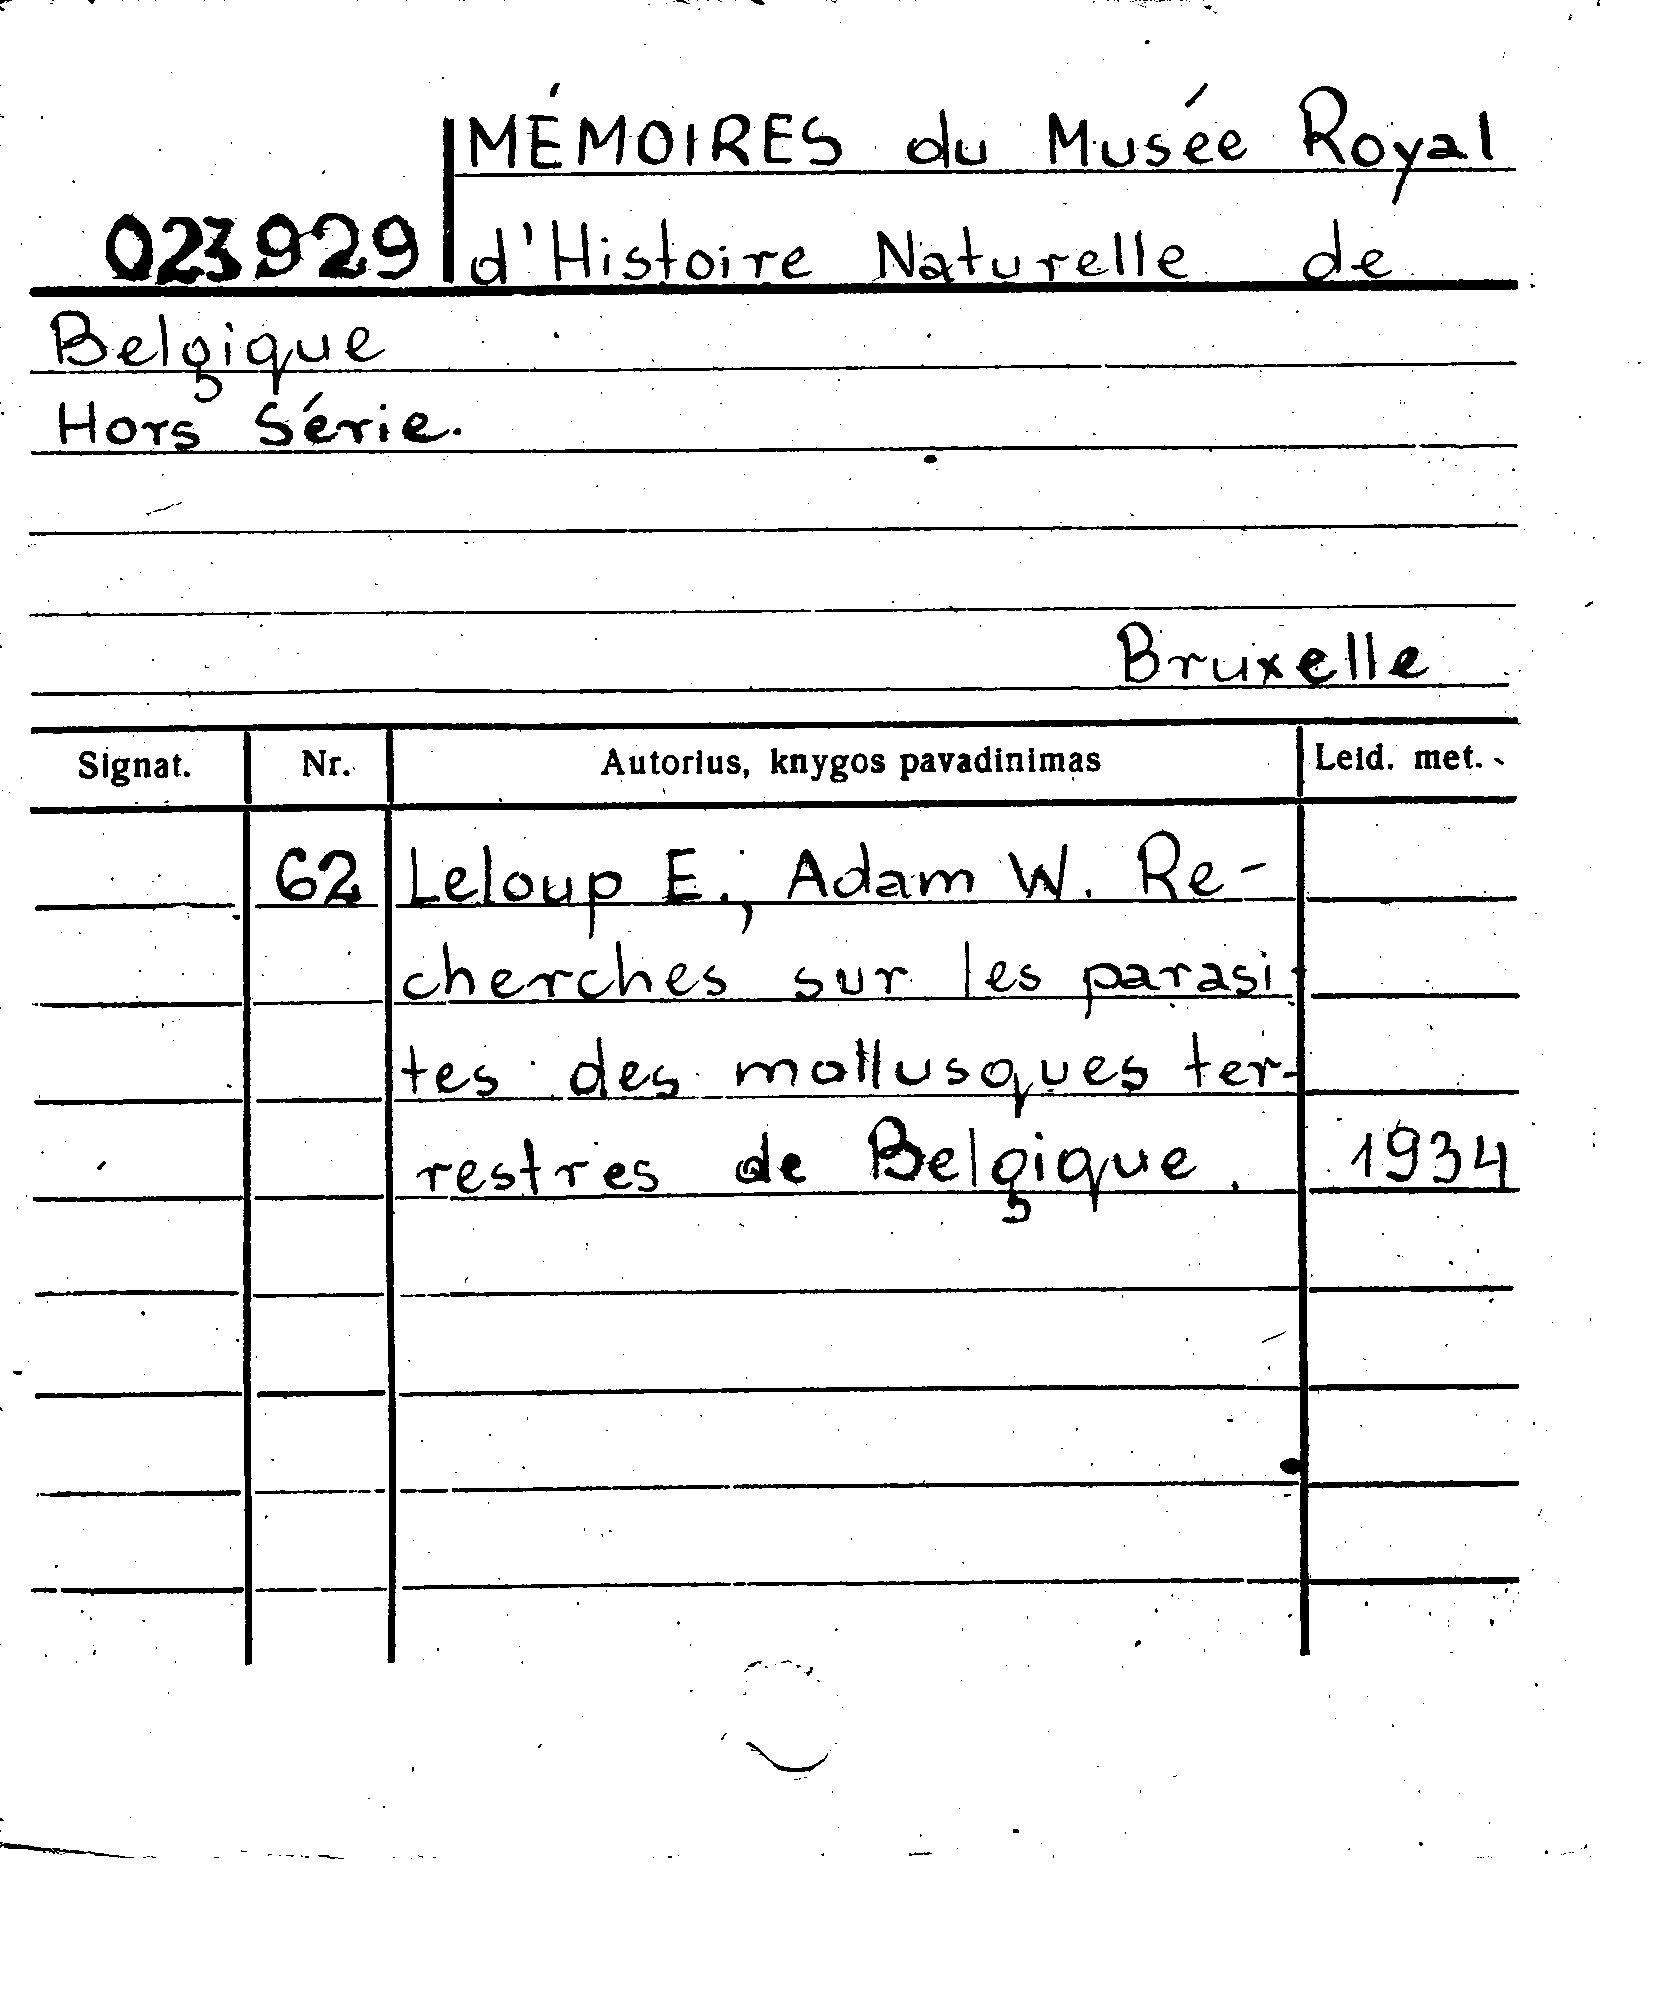 MÉMOIRES du Musée Royal
023929 d'Histoire Naturelle de
Belgique
Hors Série.
Bruxelle
Signat. Nr. Autorius, knygos pavadinimas Leid. met.
62 Leloup E., Adam W. Re-
cherches sur les parasi-
tes des mollusques ter-
restres de Belgique. 1934